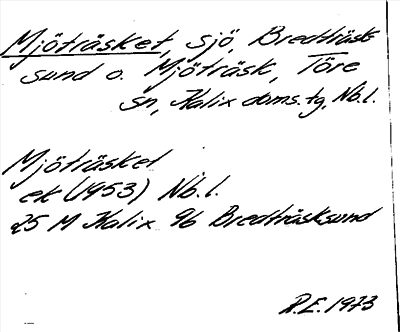 Mjöträsket, sjö, Bredträsk
sund o. Mjöträsk, Töre
sn, Kalix doms.tg, Nb.l.
Mjöträsket
ek (1953) Nb.l.
25 M Kalix 96 Bredträsksund
R.E. 1973